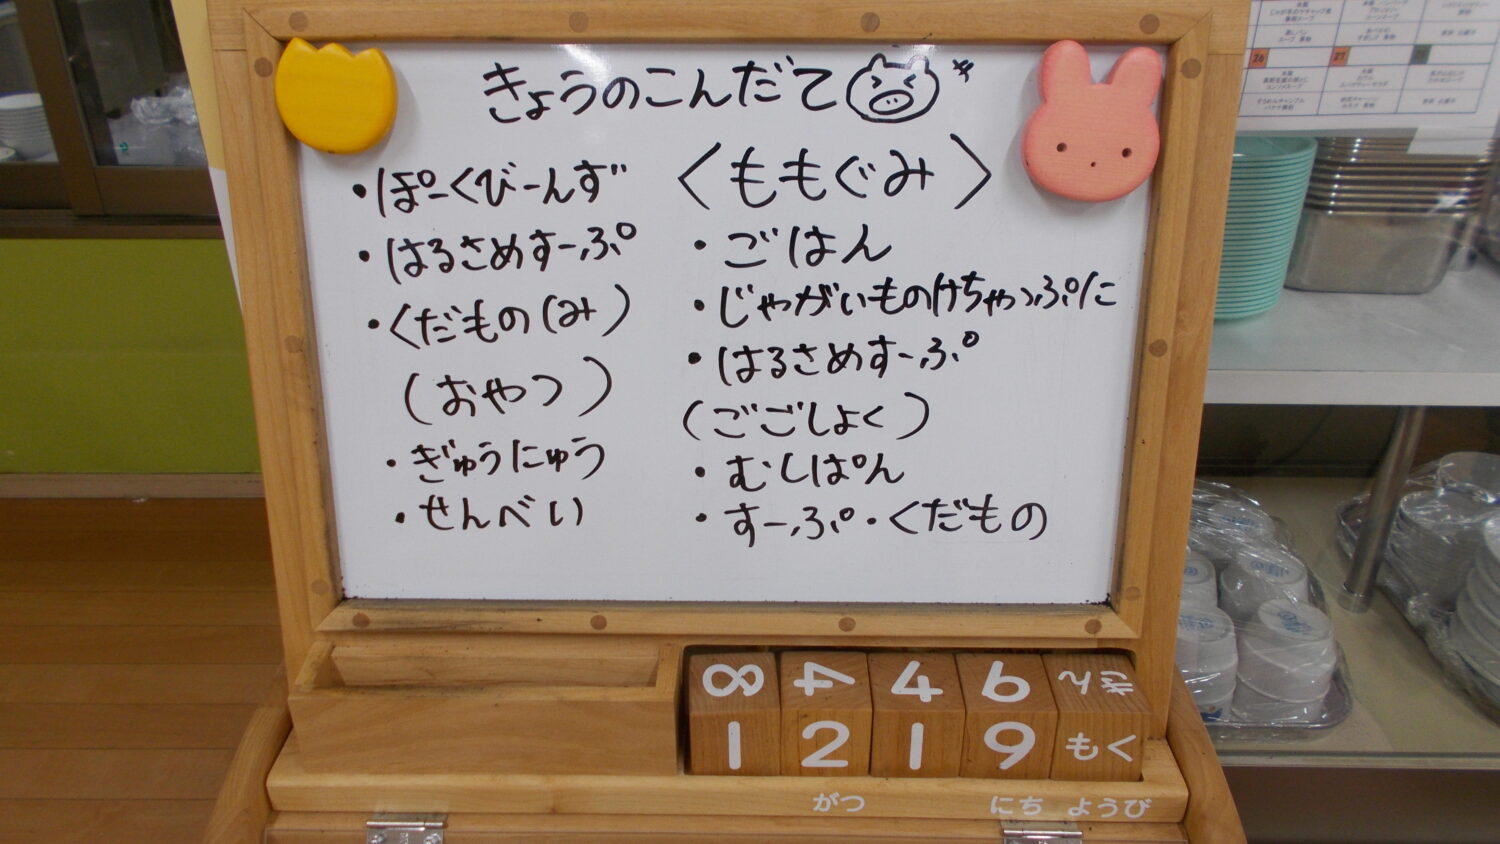 きょうのこんだて
・ぽーくびーんず
・はるさめすーぷ
・くだもの(み)
(おやつ)
・ぎゅうにゅう
・せんべい
〈ももぐみ〉
・ごはん
・じゃがいものけちゃっぷに
・はるさめすーぷ
(ごごしょく)
・むしぱん
・すーぷ・くだもの
8 4 4 6 きん
1 2 1 9 もく
がつ にち ようび
26
27